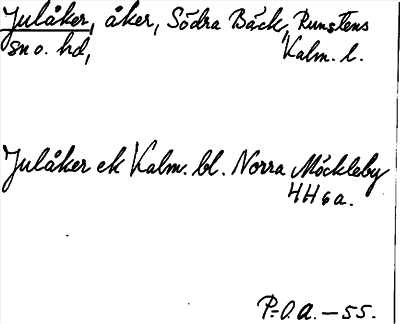 Julåker, åker, Södra Bäck, Runstens
sn o. hd, Kalm. l.
Julåker ek Kalm. bl. Norra Möckleby
4H6a.
P.-O.A. – 55.